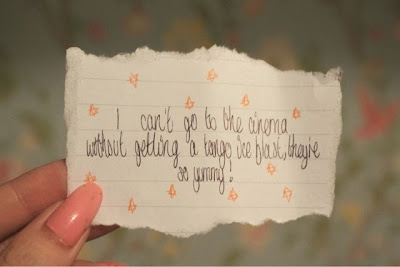 I can't go to the cinema
without getting a tango ice blast, they're
so yummy!